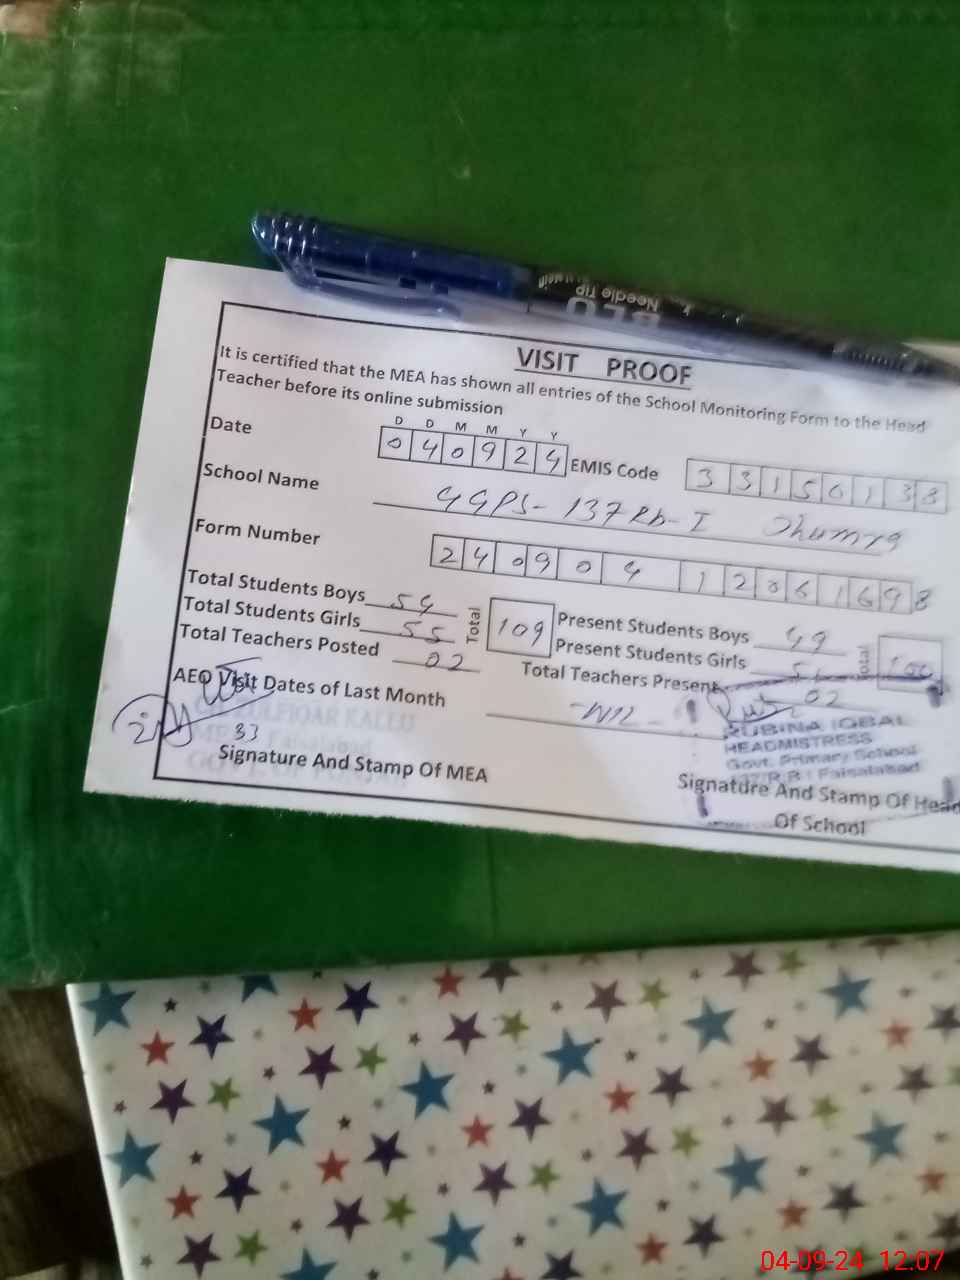 BLU
Needle Tip
VISIT PROOF
It is certified that the MEA has shown all entries of the School Monitoring Form to the Head
Teacher before its online submission
D D M M Y Y
Date 040924 EMIS Code 33150138
School Name GGPS-137Rb-I Jhumra
Form Number 240904 12061698
Total Students Boys 54 Total 109 Present Students Boys 49 Total 100
Total Students Girls 55 Present Students Girls 51
Total Teachers Posted 02 Total Teachers Present 02
AEO Visit Dates of Last Month -Nil-
33
RUBINA IQBAL
HEADMISTRESS
Govt. Primary School
Faisalabad
Signature And Stamp Of MEA
Signature And Stamp Of Head
Of School
04-09-24 12.07